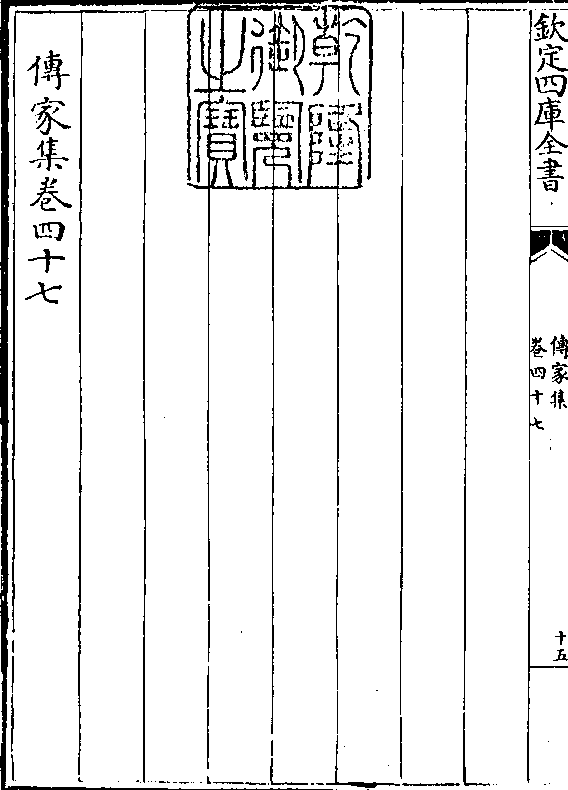 欽定四庫全書
傳家集
卷四十七
十五
乾隆御覽之寶
傳家集卷四十七